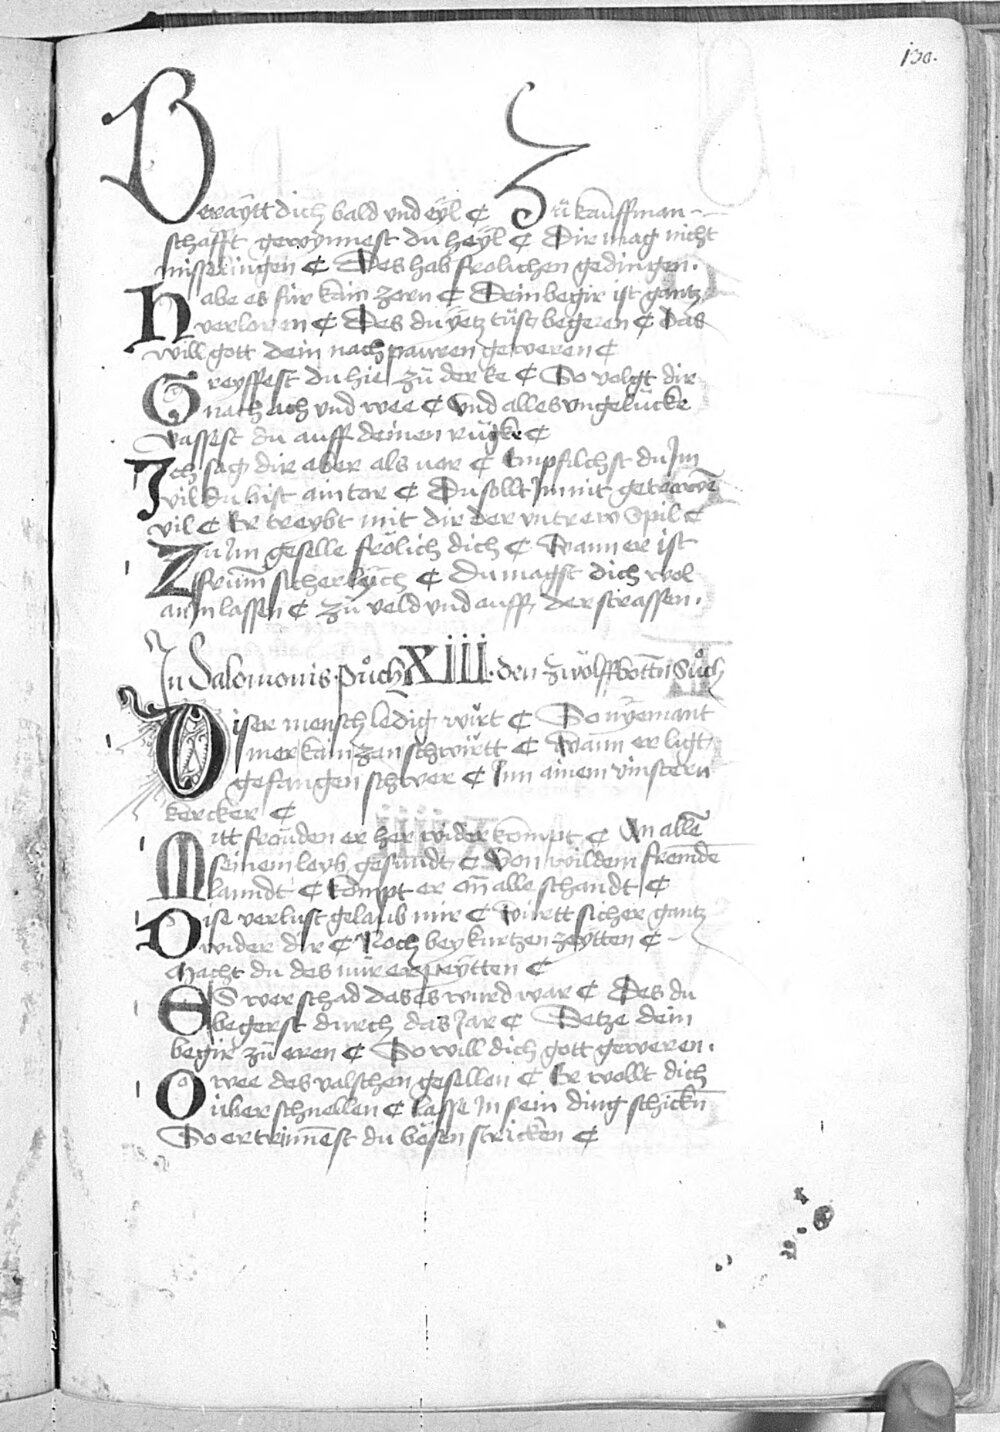 130.
Beraÿtt dich bald vnd eÿl ¢ Zů kauffman-
schafft gewÿnnest du heÿl ¢ Dir mag nicht
misselingen ¢ Des hab frolichen gedingen.
Habe es für kain zorn ¢ Dein begir ist gantz
verloren ¢ Des du ÿetz tůst begeren ¢ Das
will gott dein nachpauren geweren ¢
Greyffest du hie zů der ke ¢ So volgt dir
nach ach vnd wee ¢ Vnd alles vngelücke
vassest du auff deinen rügke ¢
Ich sag dir aber als uor ¢ Empfilchst du Im
vil du bist ain tor ¢ Du sollt Im nit getrawē
vil ¢ Er treybt mit dir der vntrew Spil ¢
Zu Im geselle frölich dich ¢ Wann er ist
frum̄ sicherlÿch ¢ Du magst dich wol
an In lassen ¢ Zů veld vnd auff der strassen.
In Salomonis Půch XIII. den zwölffbottn̄ Sůch
Diser mensch ledig wirt ¢ So nÿemant
mer kain zan schwirtt ¢ Wann er ligt
gefangen schwer ¢ Inn ainem vinstern
kercker ¢
Mitt frouden er her wider kompt ¢ An allē
seinem leyb gesundt ¢ Von wildem fremde
lanndt ¢ Kompt er on̄ alle schandt ¢
Dise verlust gelaub mir ¢ Wirtt sicher gantz
wider dir ¢ Noch bey kurtzen zeÿtten ¢
Macht du des mir erpeÿtten ¢
ES wer schad das es wurd war ¢ Des du
begerst durch das Jar ¢ Setze dein
begir zů eren ¢ So will dich gott geweren.
O wee des valschen gesellen ¢ Er wollt dich
überschnellen ¢ Lasse In sein ding schickn̄
So ertrinnest du bösen stricken ¢